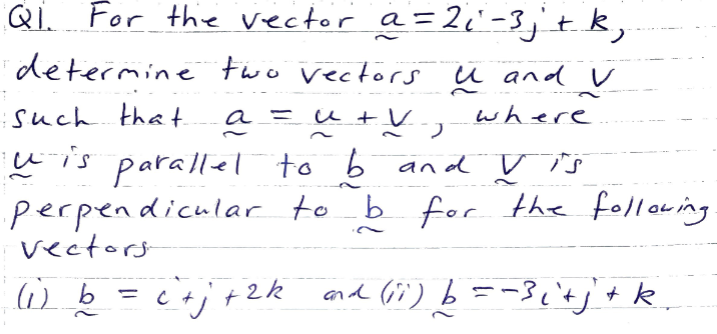 Q1. For the vector a = 2i - 3j + k,
determine two vectors u and v
such that a = u + v, where
u is parallel to b and v is
perpendicular to b for the following
vectors
(i) b = i + j + 2k and (ii) b = -3i + j + k.